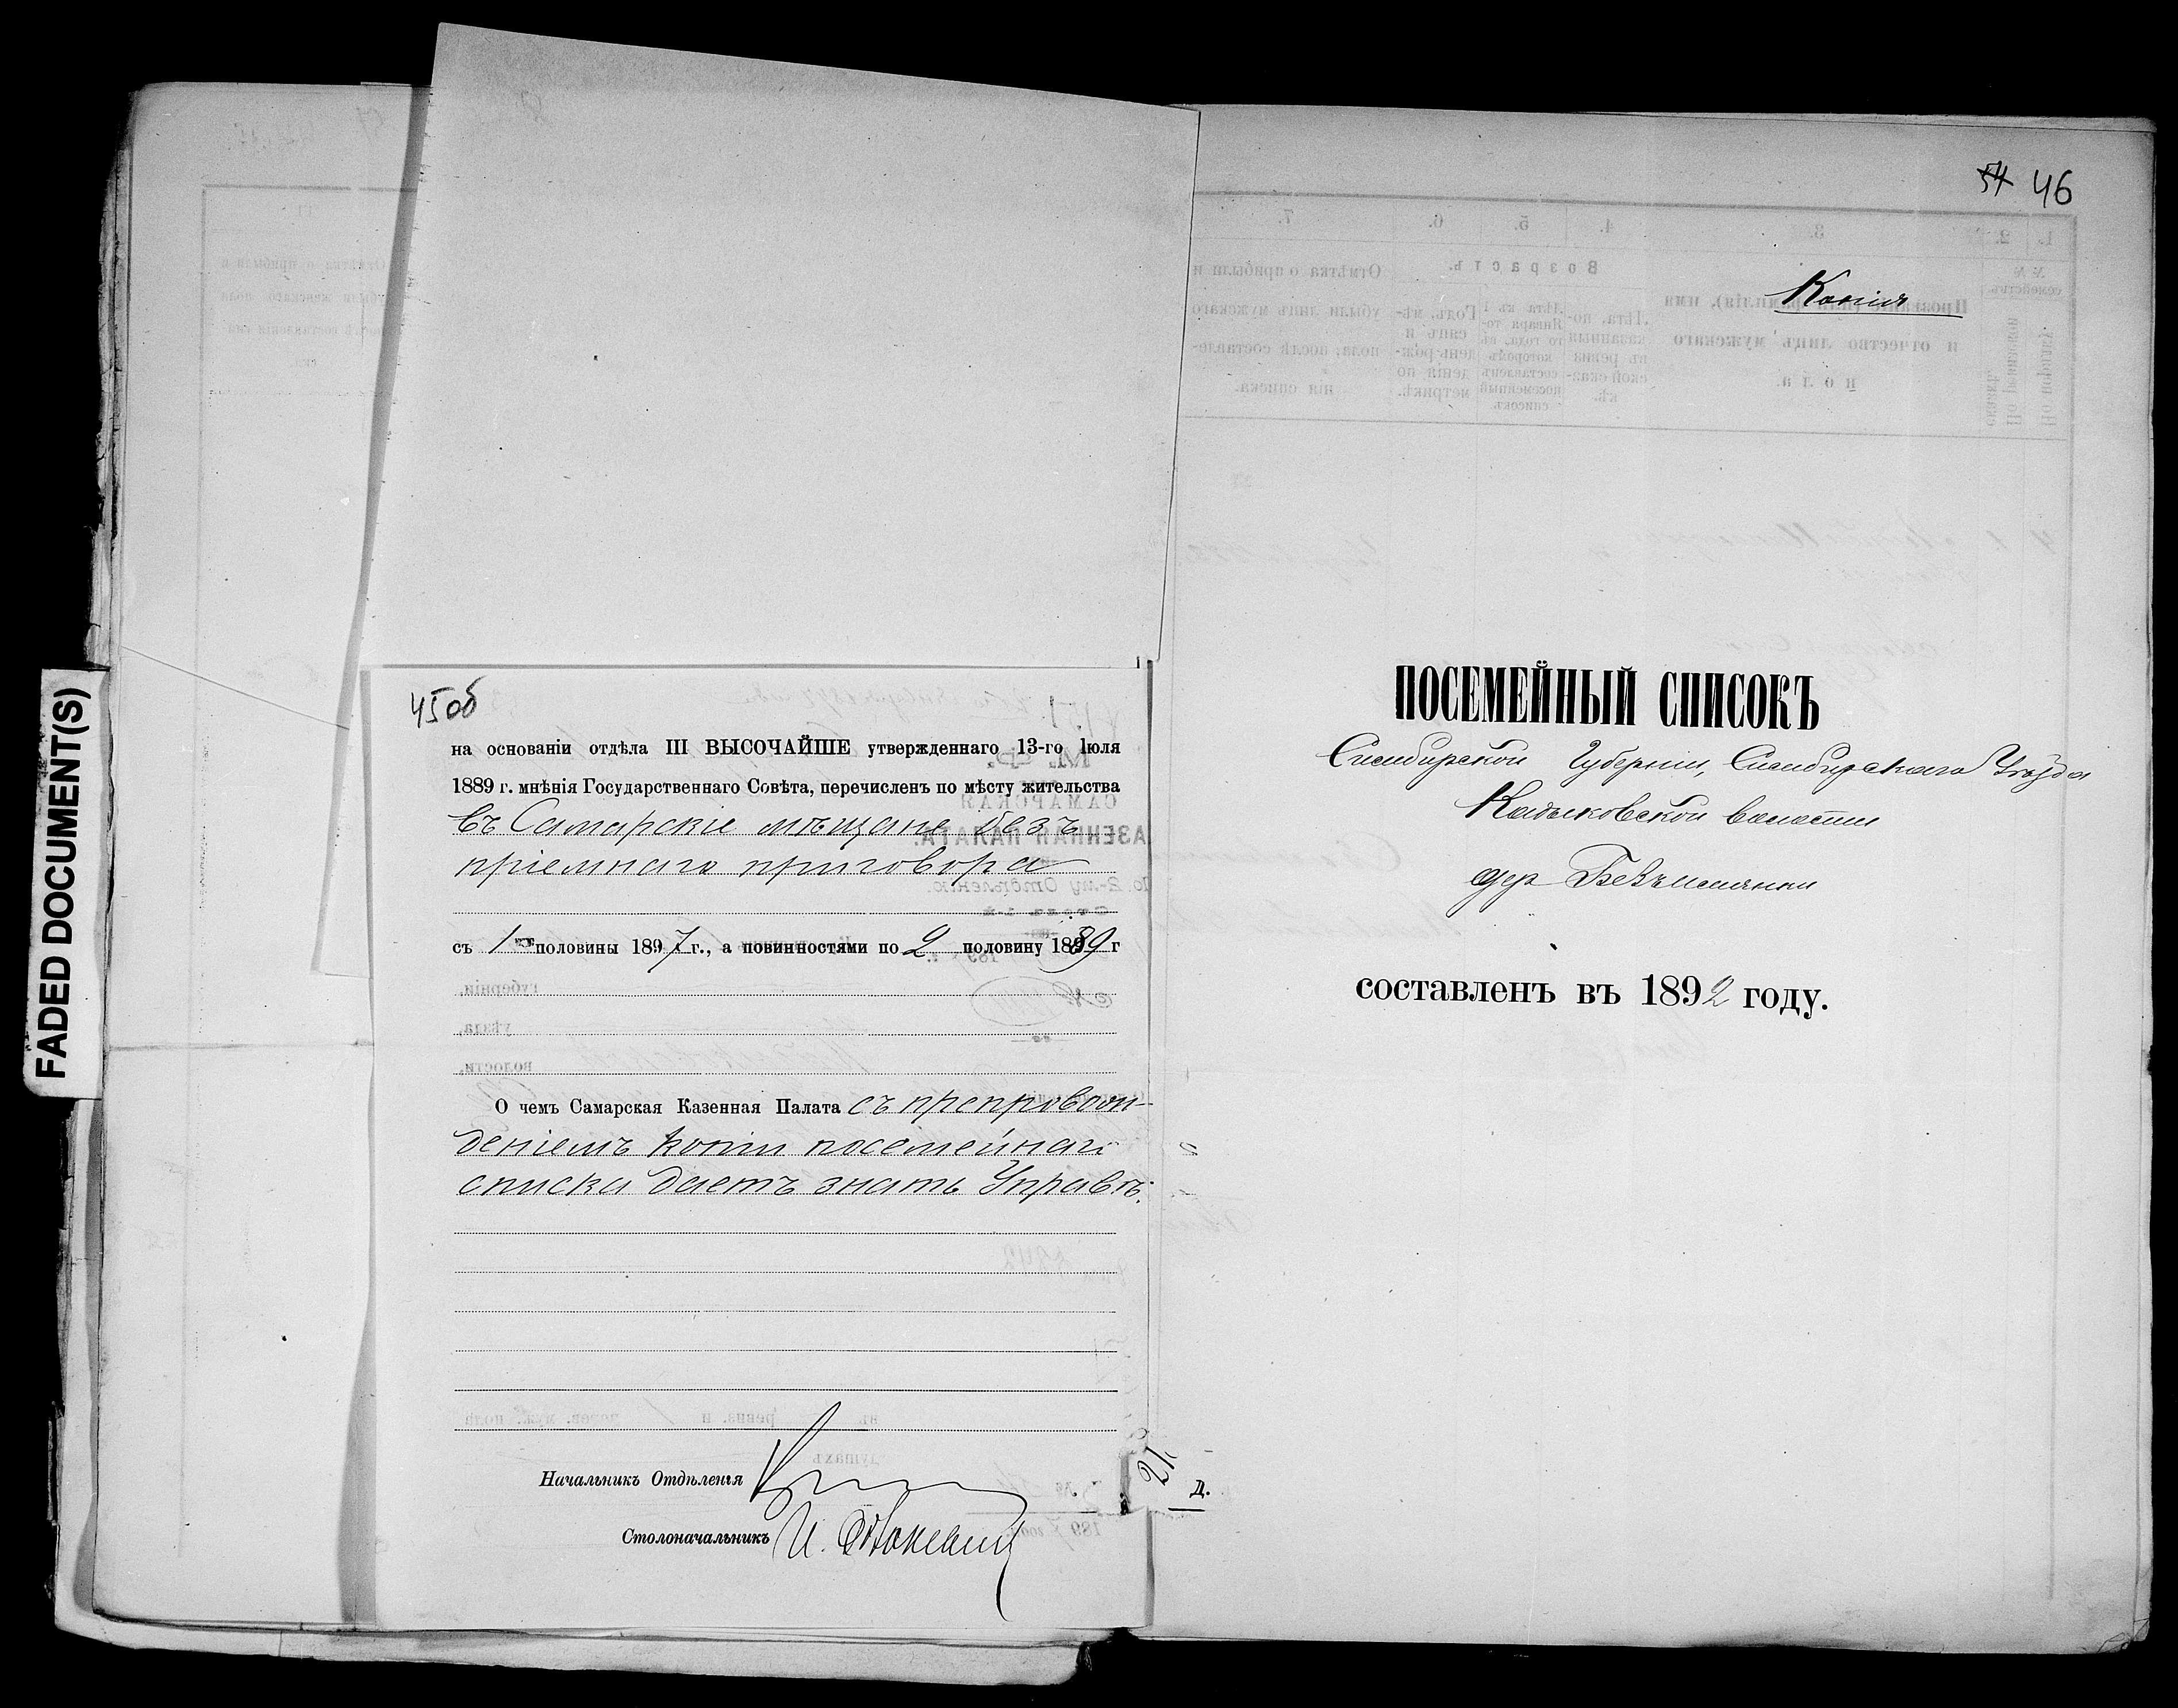 FADED DOCUMENT(S)
45об
на основаніи отдѣла III ВЫСОЧАЙШЕ утвержденнаго 13-го Іюля
1889 г. мнѣнія Государственнаго Совѣта, перечисленъ по мѣсту жительства
въ Самарскіе мѣщане безъ
пріемнаго приговора
съ 1 половины 1897 г., а повинностями по 2 половину 1889 г
О чемъ Самарская Казенная Палата съ препровож-
деніемъ копіи посемейнаго
списка даетъ знать Управѣ.
Начальникъ Отдѣленія
Столоначальникъ И.
21
д.
54 46
Копія
ПОСЕМЕЙНЫЙ СПИСОКЪ
Симбирской Губерніи, Симбирскаго Уѣзда
Кадыковской волости
дер
составленъ въ 1892 году.